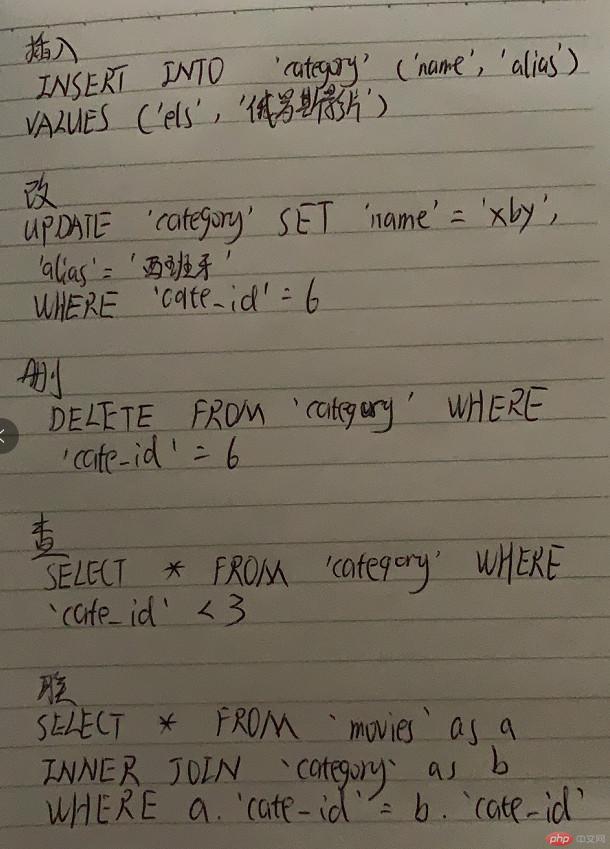 插入
INSERT INTO 'category' ('name', 'alias')
VALUES ('els', '俄罗斯影片')
改
UPDATE 'category' SET 'name' = 'xby',
'alias' = '西班牙'
WHERE 'cate_id' = 6
删
DELETE FROM 'category' WHERE
'cate_id' = 6
查
SELECT * FROM 'category' WHERE
`cate_id' < 3
联
SELECT * FROM `movies` as a
INNER JOIN `category` as b
WHERE a. 'cate_id' = b. 'cate_id'
php 中文网